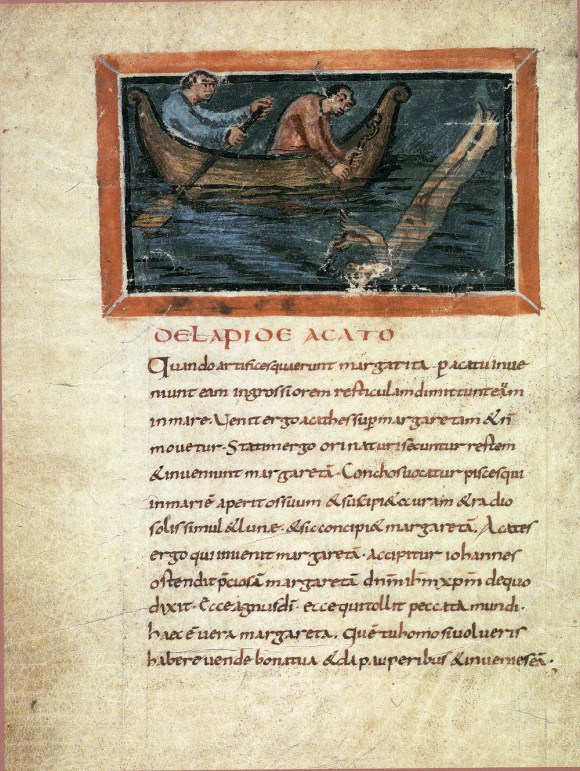 DE LAPIDE ACATO
Quando artifices querunt margarita · p acatu inue
niunt eam in grossiorem resticulam dimittunt eam
in mare · Uenit ergo acathes sup margaretam & n̄
mouetur · Statim ergo orinaturi secuntur restem
& inueniunt margaretā · Conchos uocatur piscis qui
in mari ē aperit os suum & suscipi& ec uram & radio
solis simul & lunae · & sic concipi& margaretā · Acates
ergo qui inuenit margaretā · accipitur iohannes
ostendit p̄ciosā margaretā dn̄m ih̄m xp̄m de quo
dixit · Ecce agnus dī · ecce qui tollit peccata mundi ·
haec ē uera margareta · Quē tu homo si uolueris
habere uende bona tua & da pauperibus & inuenies eā ·